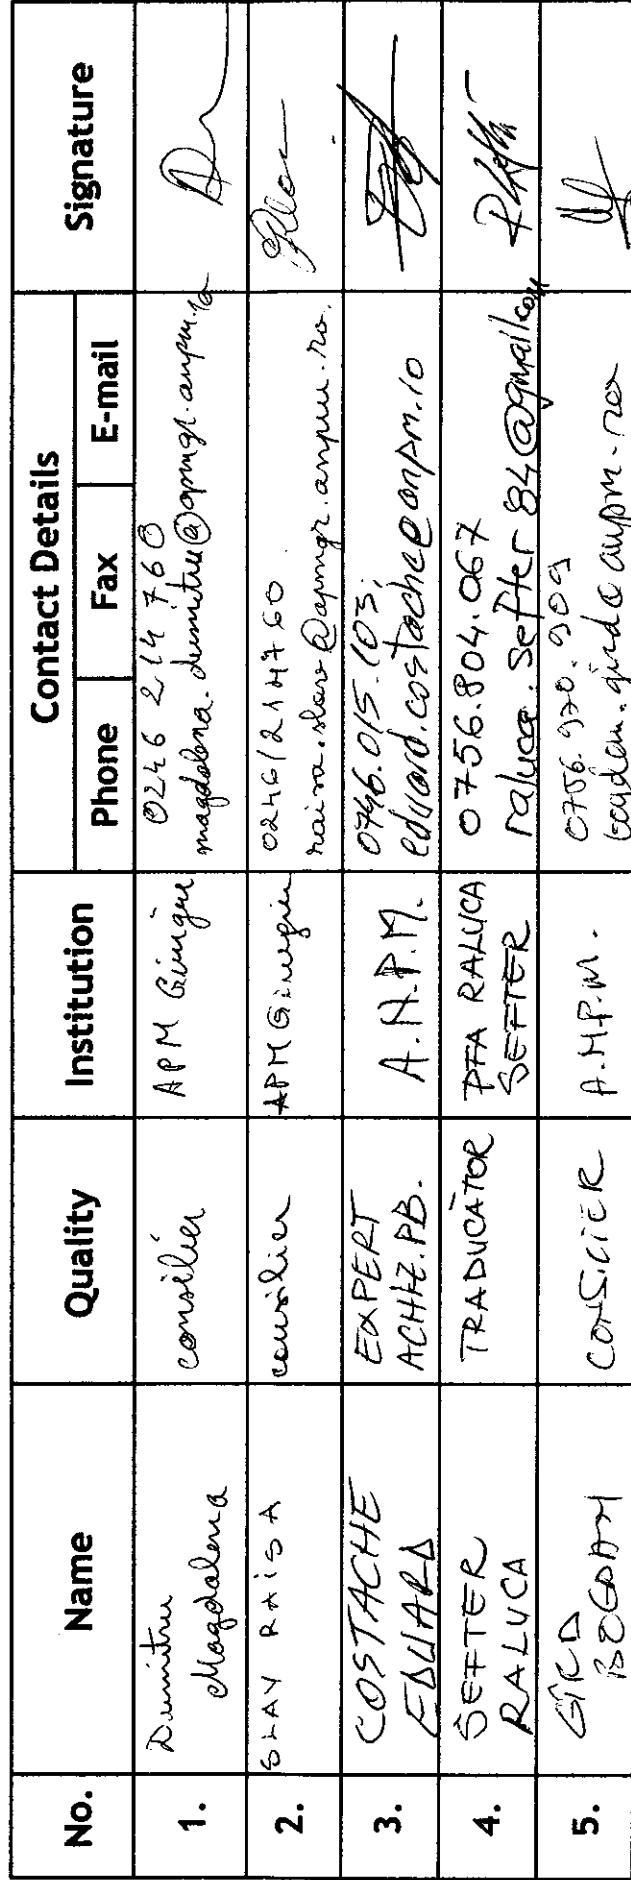 No. Name Quality Institution Contact Details Signature
Phone Fax E-mail
1. Dumitru Magdalena consilier APM Giurgiu 0246 214 760
magdalena.dumitru@apmgr.anpm.ro
2. SLAV RAISA consilier APM Giurgiu 0246/214760
raisa.slav@apmgr.anpm.ro.
3. COSTACHE EDUARD EXPERT ACHIZ.PB. A.N.P.M. 0746.015.103;
eduard.costache@anpm.ro
4. ȘEFTER RALUCA TRADUCĂTOR PFA RALUCA ȘEFTER 0756.804.067
raluca.sefter84@gmail.com
5. BOGDAN CONSILIER A.N.P.M. 0756.970.909